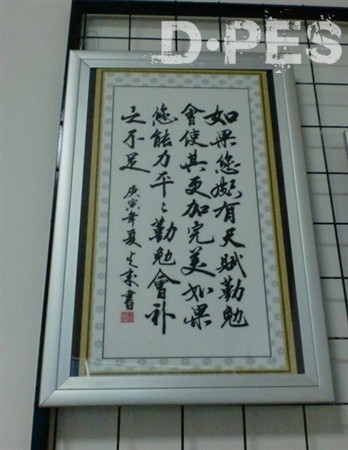 D·PES
如果您頗有天賦勤勉
會使其更加完美如果
您能力平〻勤勉會补
之不足 庚寅年夏 書